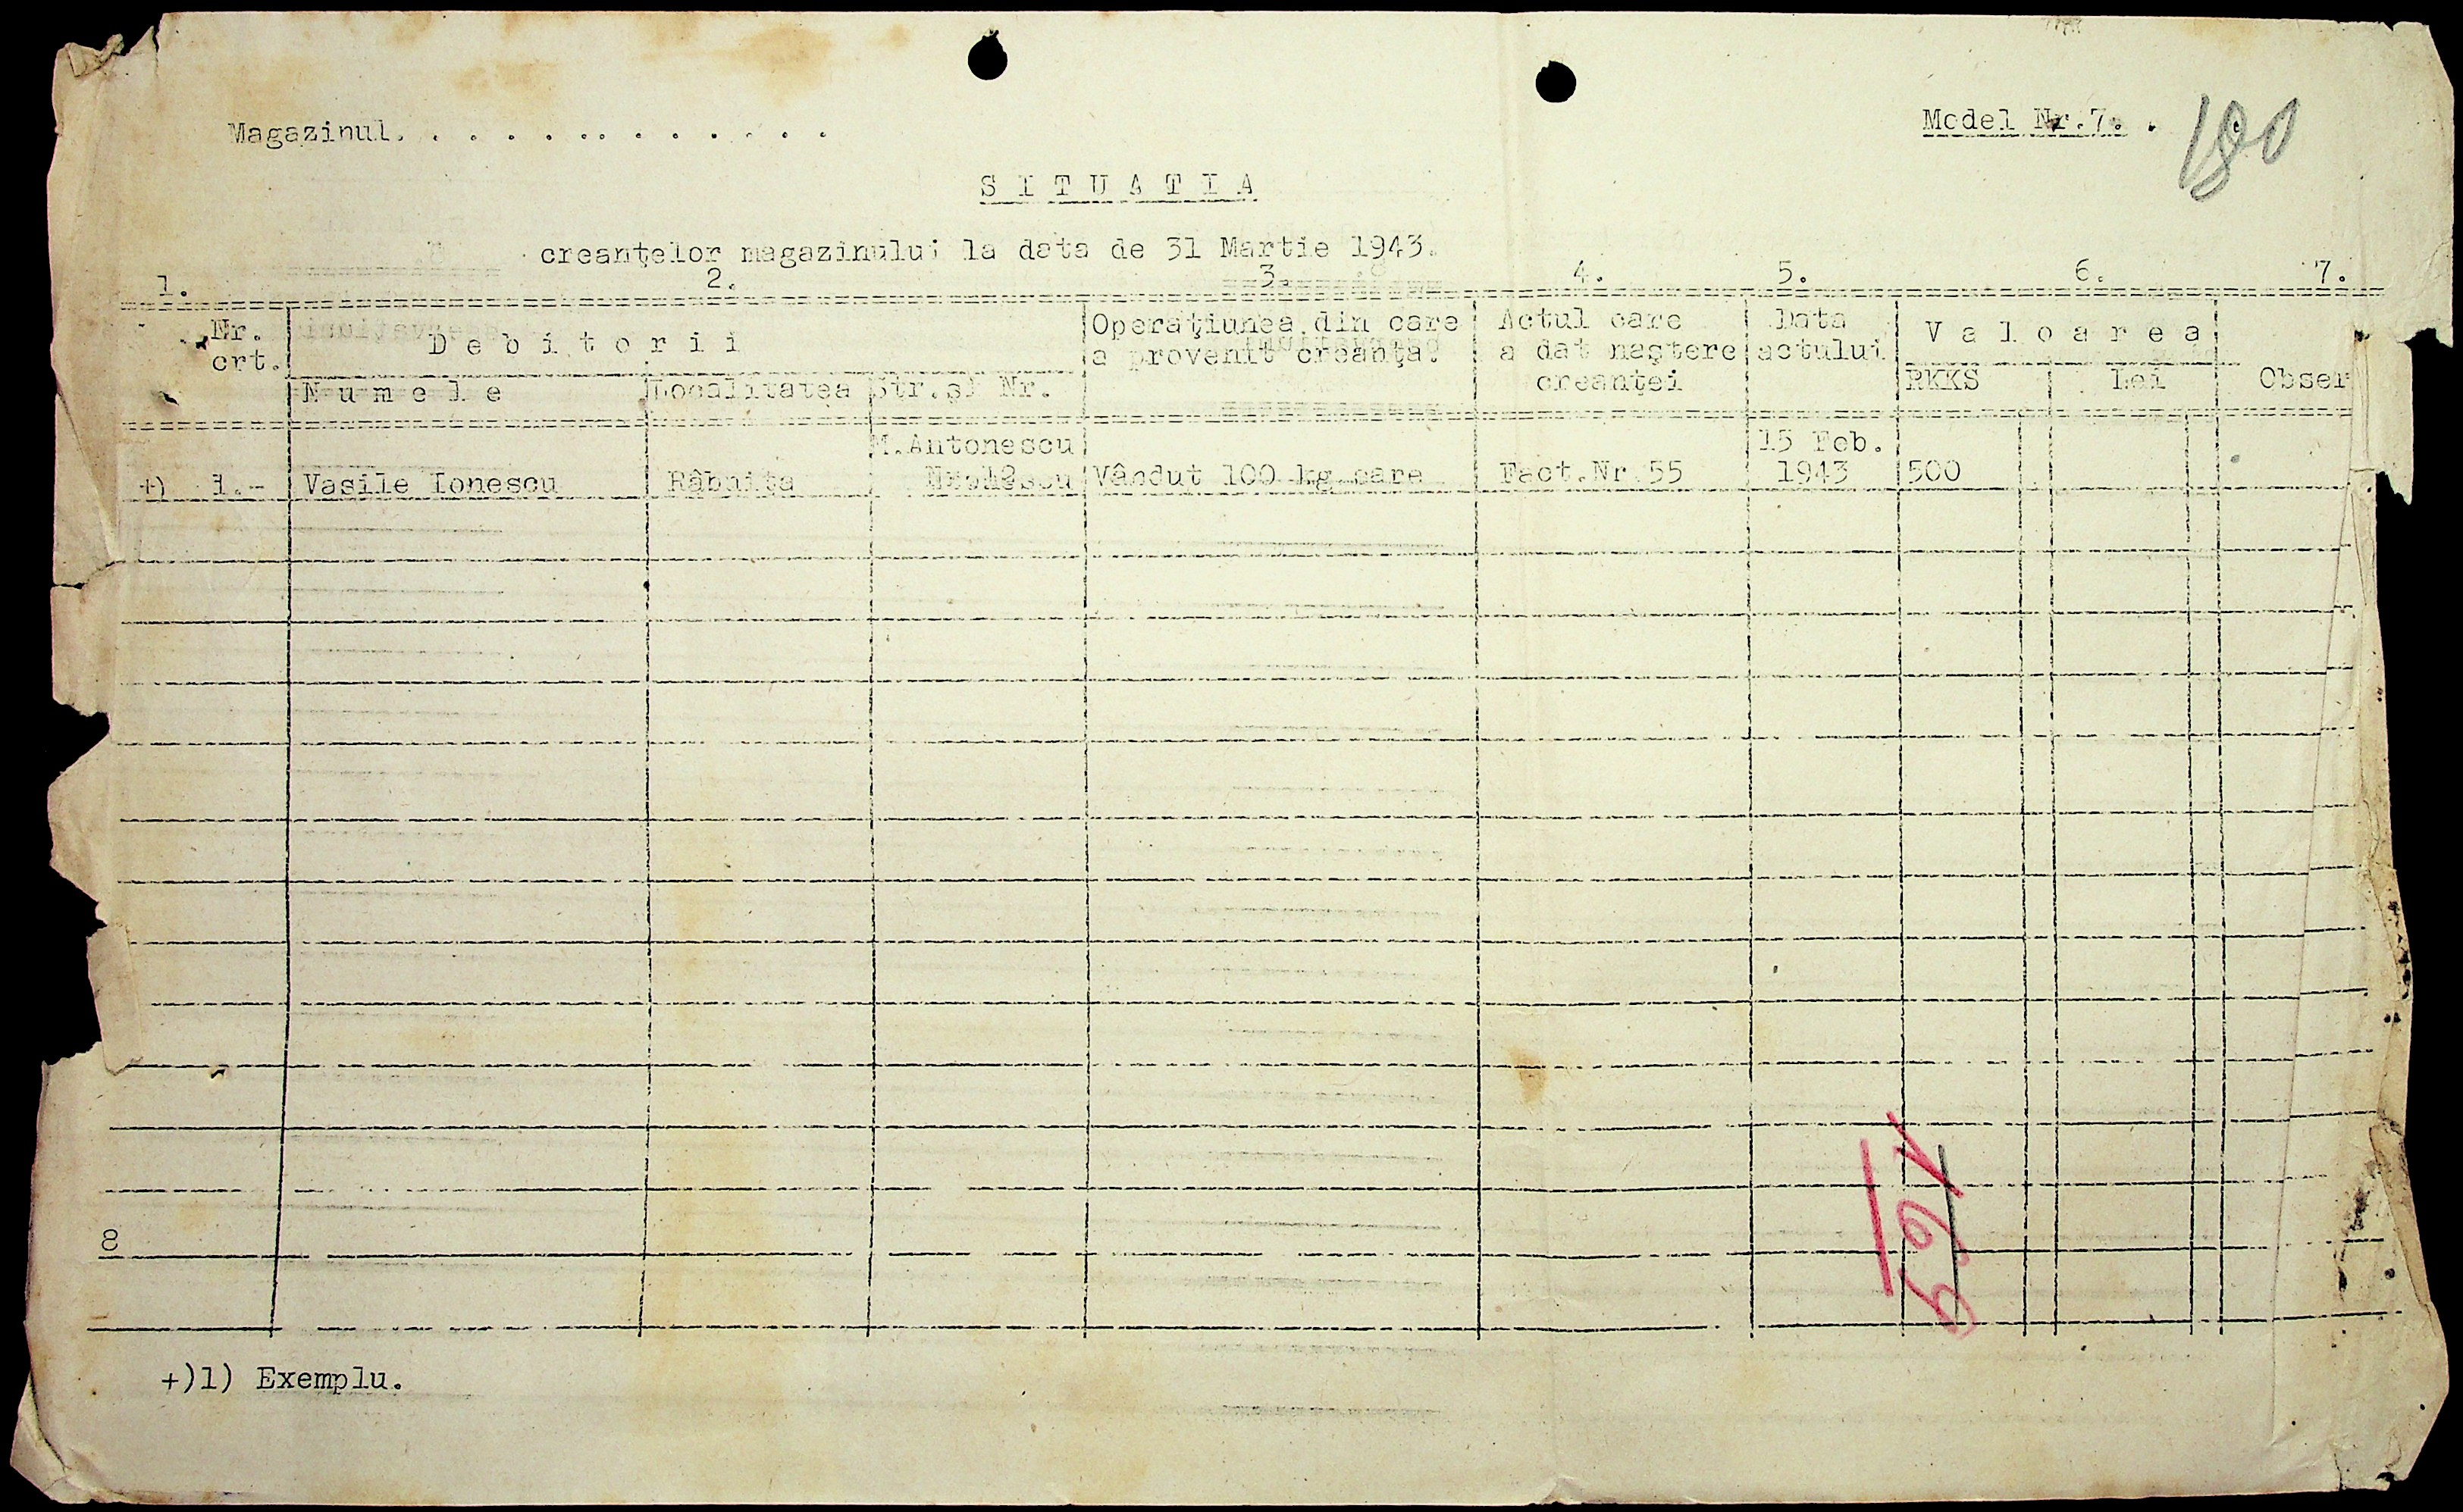 Magazinul. . . . . . . . . . . . .
Model Nr.7. .
180
S I T U A T I A
creanţelor magazinului la data de 31 Martie 1943.
1. 2. 3. 4. 5. 6. 7.
Nr. crt. D e b i t o r i i Operaţiunea din care a provenit creanţa. Actul care a dat naştere creanţei Data actului V a l o a r e a
N u m e l e Localitatea Str.şi Nr. RKKS Lei Obser
M.Antonescu 15 Feb.
+) 1.- Vasile Ionescu Râbniţa Vândut 100 kg sare Fact.Nr.55 1943 500
169
8
+)1) Exemplu.